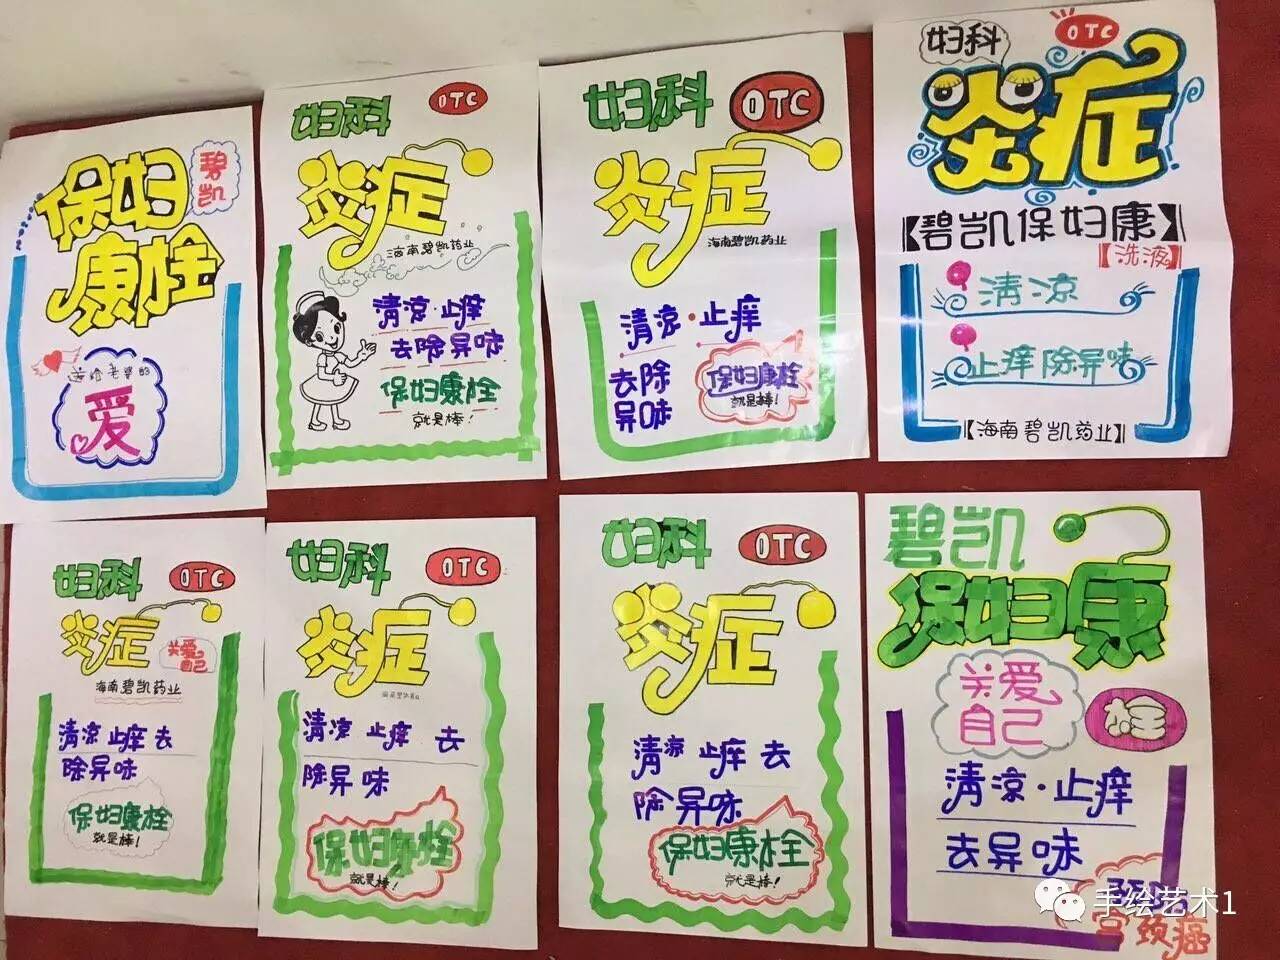 碧凯
保妇
康栓
送给老婆的
爱
妇科
OTC
炎症
海南碧凯药业
清凉·止痒
去除异味
保妇康栓
就是棒！
妇科
OTC
炎症
海南碧凯药业
清凉·止痒
去除
异味
保妇康栓
就是棒！
妇科
OTC
炎症
【碧凯保妇康】
【洗液】
清凉
止痒除异味
【海南碧凯药业】
妇科
OTC
炎症
关爱
自己
海南碧凯药业
清凉止痒去
除异味
保妇康栓
就是棒！
妇科
OTC
炎症
清凉止痒去
除异味
保妇康栓
就是棒！
妇科
OTC
炎症
清凉止痒去
除异味
保妇康栓
就是棒！
碧凯
保妇康
关爱
自己
清凉·止痒
去异味
宫颈癌
手绘艺术1